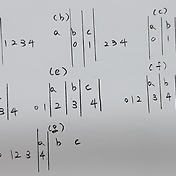 (b) (c)
a b c a
1 2 3 4 0 1 2 3 4 0 1
(e) (f)
a b c a b
0 1 2 3 4 0 1 2 3 4
(g)
a b c
0 1 2 3 4